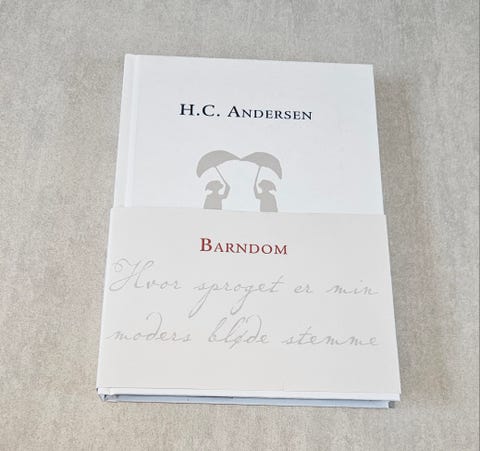 H.C. ANDERSEN
BARNDOM
Hvor sproget er min
moders bløde stemme